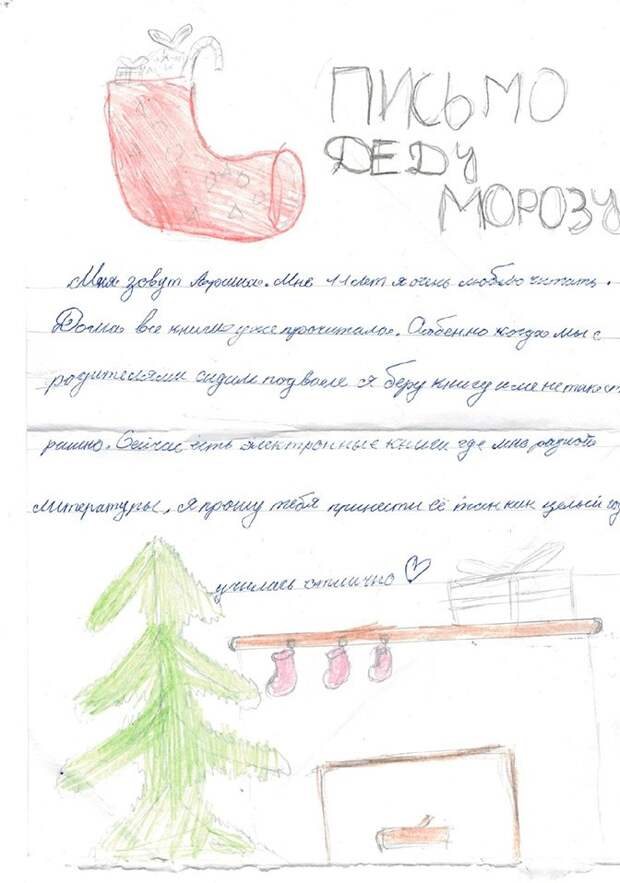 ПИСЬМО
ДЕДУ
МОРОЗУ
Меня зовут Мне 11 лет я очень люблю читать.
Дома все книги уже прочитала. Особенно когда мы с
родителями сидим подвале я беру книгу и мне не так ст
рашно. Сейчас есть электронные книги где мно разной
литературы. Я прошу тебя принести её так как целый
училась отлично